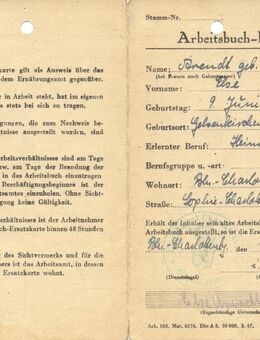 karte gilt als Ausweis über das
dem Ernährungsamt gegenüber.
in Arbeit steht, hat im eigenen
es stets bei sich zu tragen.
gungen, die zum Nachweis be-
tnisse ausgestellt wurden, sind
rbeitsverhältnisses sind am Tage
zw. am Tage der Beendung der
in das Arbeitsbuch einzutragen
Beschäftigungsbeginns ist der
itsamtes einzuholen. Ohne Sich-
gung keine Gültigkeit.
rhältnisses ist der Arbeitnehmer
ch-Ersatzkarte binnen 48 Stunden
g des Sichtvermerks und für die
ers ist das Arbeitsamt, in dessen
Ersatzkarte wohnt.
Stamm-Nr.
Arbeitsbuch-
Name: Brandt geb.
(bei Frauen auch Geburtsname)
Vorname: Else
Geburtstag: 9. Juni
Geburtsort: Gelsenkirchen
Erlernter Beruf:
Berufsgruppe u. -art:
Wohnort: Bln.-Charlotten
Straße: Sophie-Charlotte
Erhält der Inhaber sein altes Arbeits
Arbeitsbuch ausgestellt, so ist die Ersa
Bln.-Charlottenbg.
(Dienstsiegel) (Dienst
(Eigenhändige Unterschr
Arb. 103. Mat. 4576. Din A 5. 50 000. 3. 47.